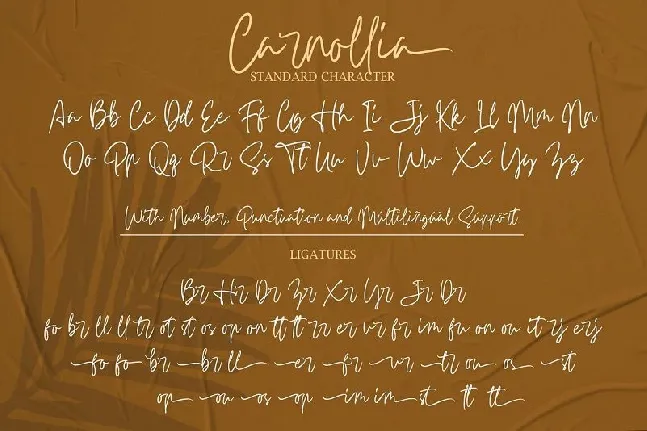 Carnollia
STANDARD CHARACTER
Aa Bb Cc Dd Ee Ff Gg Hh Ii Jj Kk Ll Mm Nn
Oo Pp Qq Rr Ss Tt Uu Vv Ww Xx Yy Zz
With Number, Punctuation and Multilingual Support
LIGATURES
Br Hr Dr Zr Xr Yr Jr Dr
fo br ll ll tr ot st os op on tt tt rr er vr fr im fu on ou it rs ers
fo fo br br ll er fr ur tr ou os st
op ou os op im im st tt tt